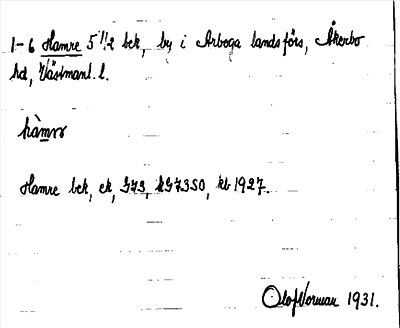 1-6 Hamre 5 1/2 bek, by i Arboga landsförs, Åkerbo
hd, Västmanl. l.
hàmrə
Hamre bek, ek, G73, kG73SO, kb 1927.
Olof Norman 1931.